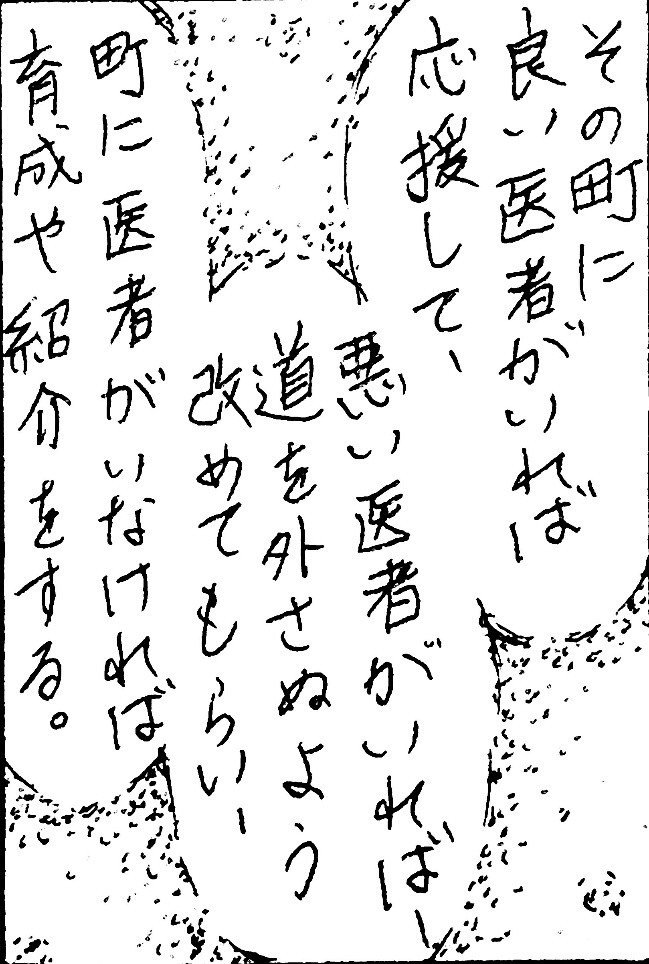 その町に
良い医者がいれば
応援して、
悪い医者がいれば、
道を外さぬよう
改めてもらい、
町に医者がいなければ
育成や紹介をする。